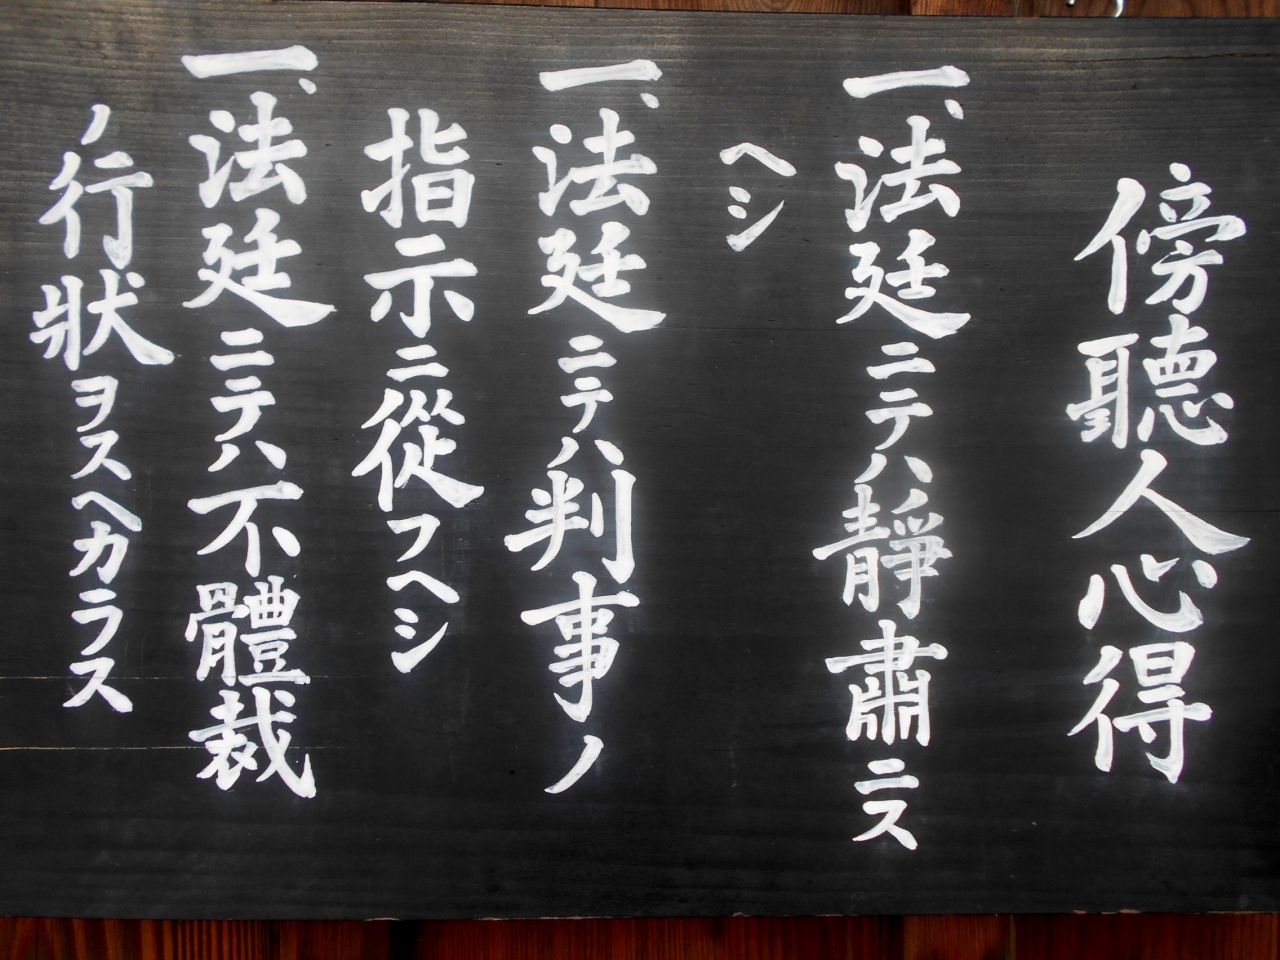 傍聽人心得
一、法廷ニテハ靜肅ニス
ヘシ
一、法廷ニテハ判事ノ
指示ニ從フヘシ
一、法廷ニテハ不體裁
ノ行狀ヲスヘカラス